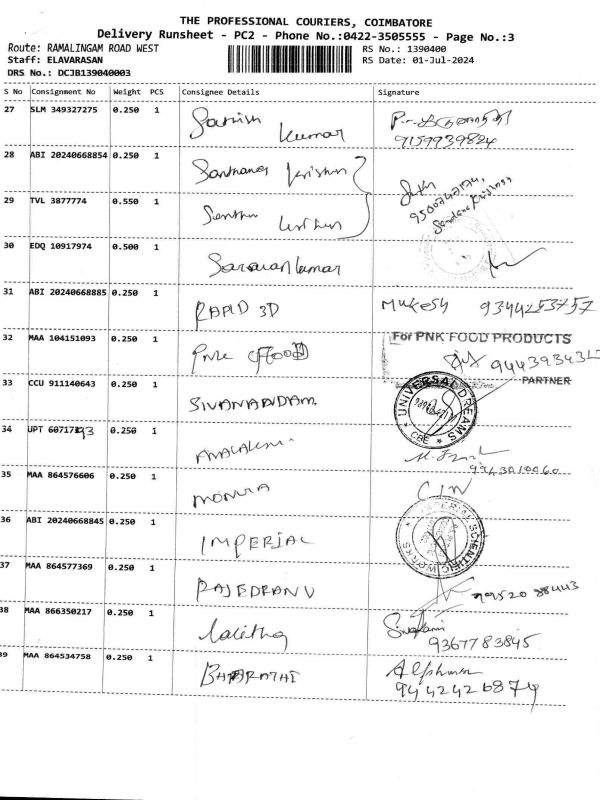 THE PROFESSIONAL COURIERS, COIMBATORE
Delivery Runsheet - PC2 - Phone No.:0422-3505555 - Page No.:3
Route: RAMALINGAM ROAD WEST RS No.: 1390400
Staff: ELAVARASAN RS Date: 01-Jul-2024
DRS No.: DCJB139040003
S No Consignment No Weight PCS Consignee Details Signature
27 SLM 349327275 0.250 1 Sathish
Kumar 9159939824
28 ABI 20240668854 0.250 1 Santhana Krishnan
29 TVL 3877774 0.550 1
30 EDQ 10917974 0.500 1 Saravan Kumar
31 ABI 20240668885 0.250 1 RAPID 3D Mukesh 9344253757
32 MAA 104151093 0.250 1 PNK FOOD For PNK FOOD PRODUCTS
PARTNER
33 CCU 911140643 0.250 1 SIVANANDAM. UNIVERSAL DREAMS CBE
34 UPT 0.250 1
35 MAA 864576606 0.250 1
36 ABI 20240668845 0.250 1 IMPERIAL IMPERIAL SCIENTIFIC WORKS
37 MAA 864577369 0.250 1 RAJEDRAN V 99520 88443
38 MAA 866350217 0.250 1 Lalitha
9367783845
39 MAA 864534758 0.250 1 BHARATHI
9442426874